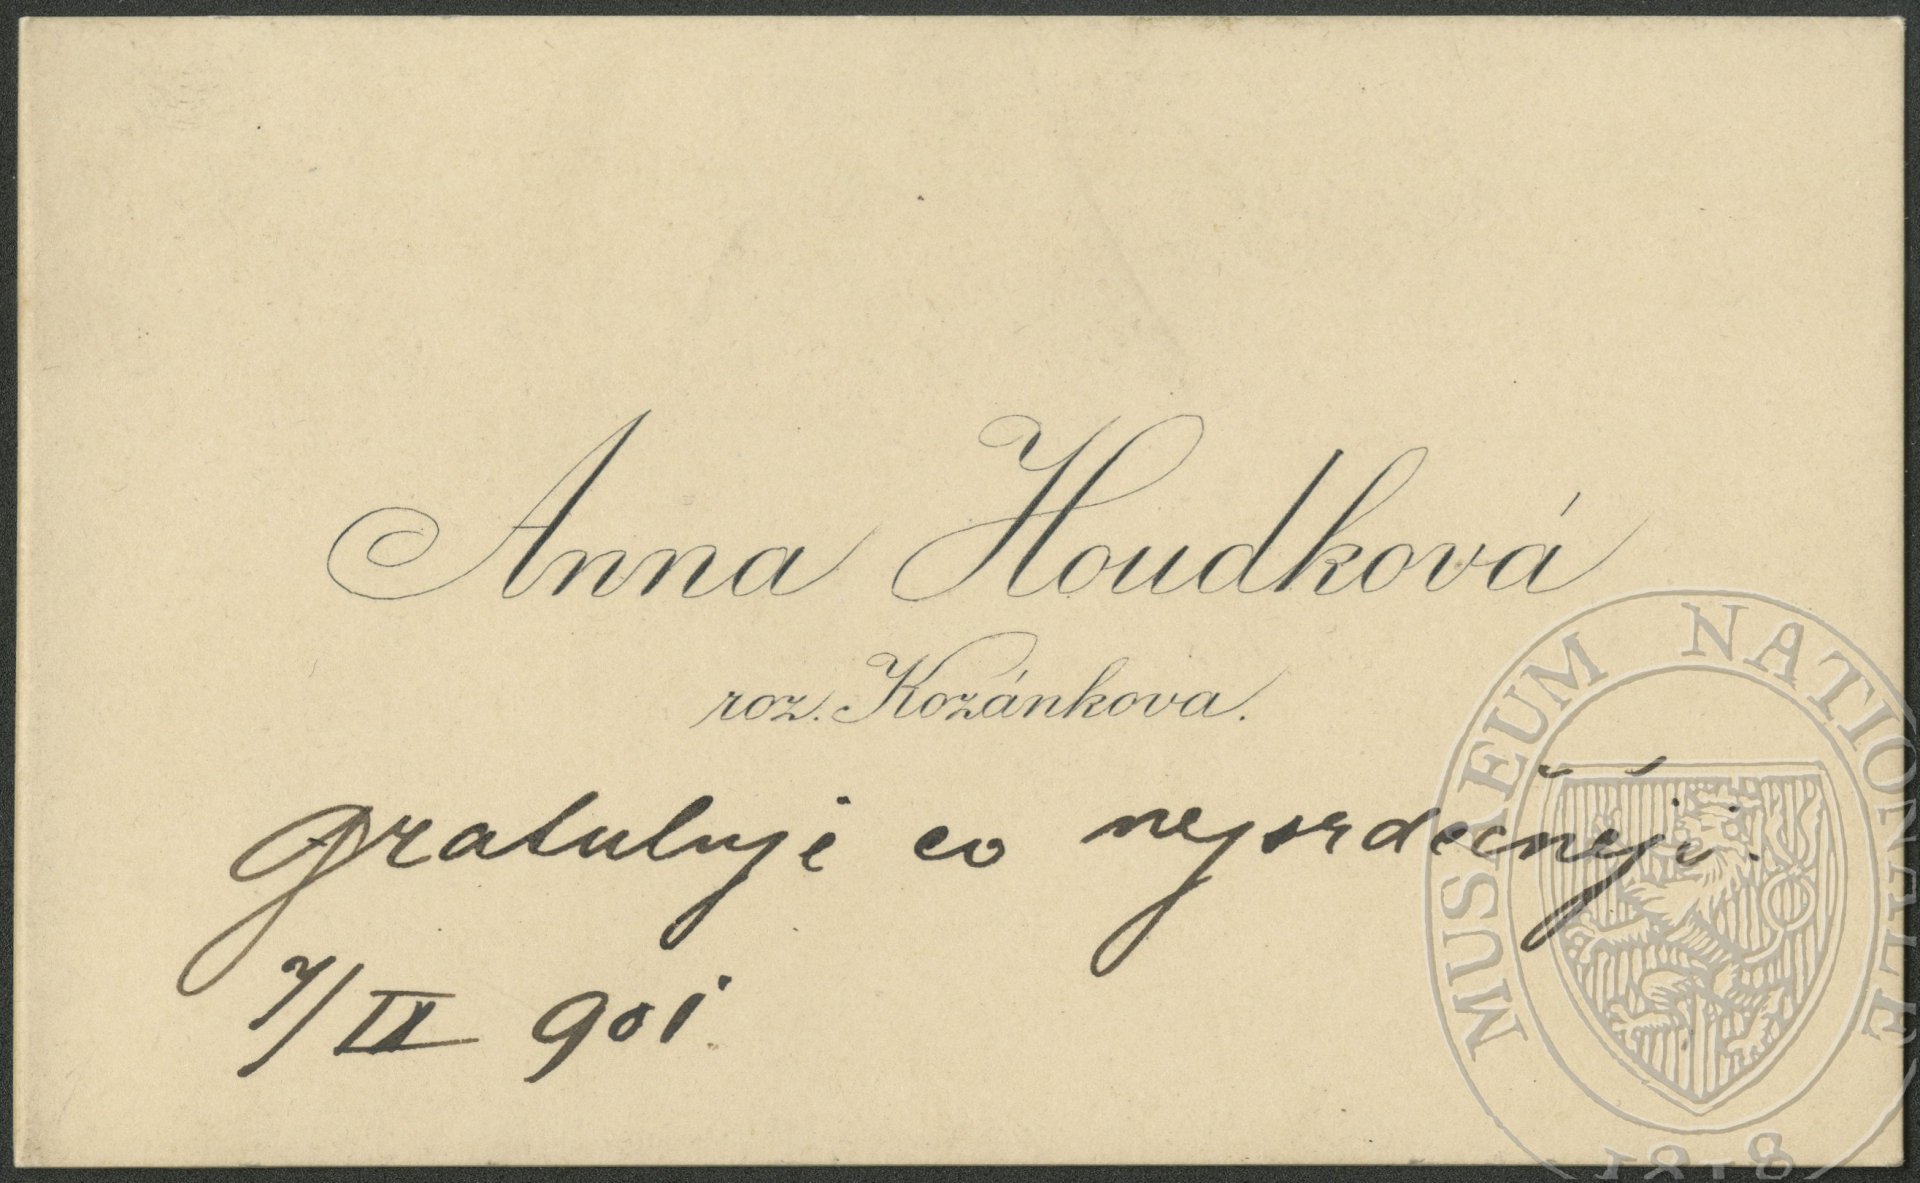 Anna Houdková
roz. Kozánkova.
gratuluje co nejsrdečněji.
7/IX 901
MUSAEUM NATIONALE
1818